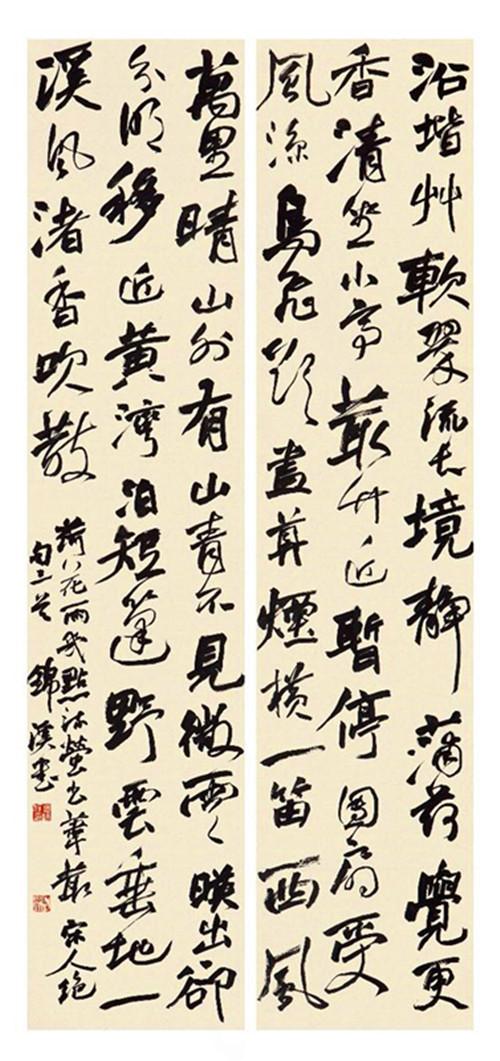 沿堦艸軟翠流長境靜蒲荷覺更
香清坐小亭叢竹近暫停團扇受
風涼鳥飛欲盡暮煙橫一笛西風
萬里晴山外有山青不見微雲映出卻
分明移近黃灣泊短篷野雲垂地一
溪風渚香吹散
荷花雨幾點流螢出葦叢 宋人絕
句三首 錦溪書